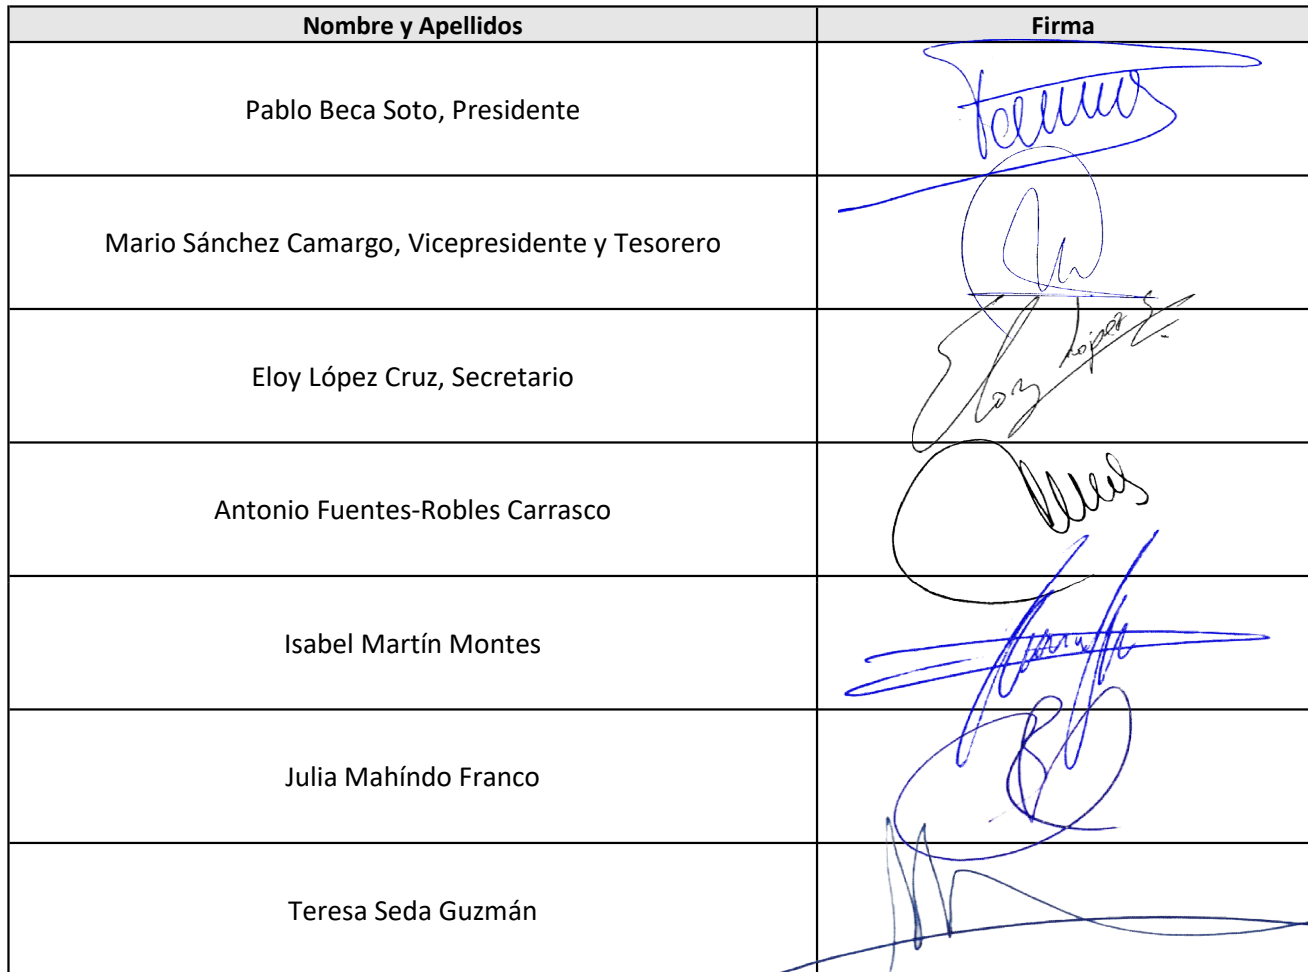 Nombre y Apellidos Firma
Pablo Beca Soto, Presidente
Mario Sánchez Camargo, Vicepresidente y Tesorero
Eloy López Cruz, Secretario
Eloy López
Antonio Fuentes-Robles Carrasco
Isabel Martín Montes
Julia Mahíndo Franco
Teresa Seda Guzmán